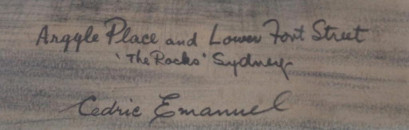 Argyle Place and Lower Fort Street
'The Rocks' Sydney
Cedric Emanuel